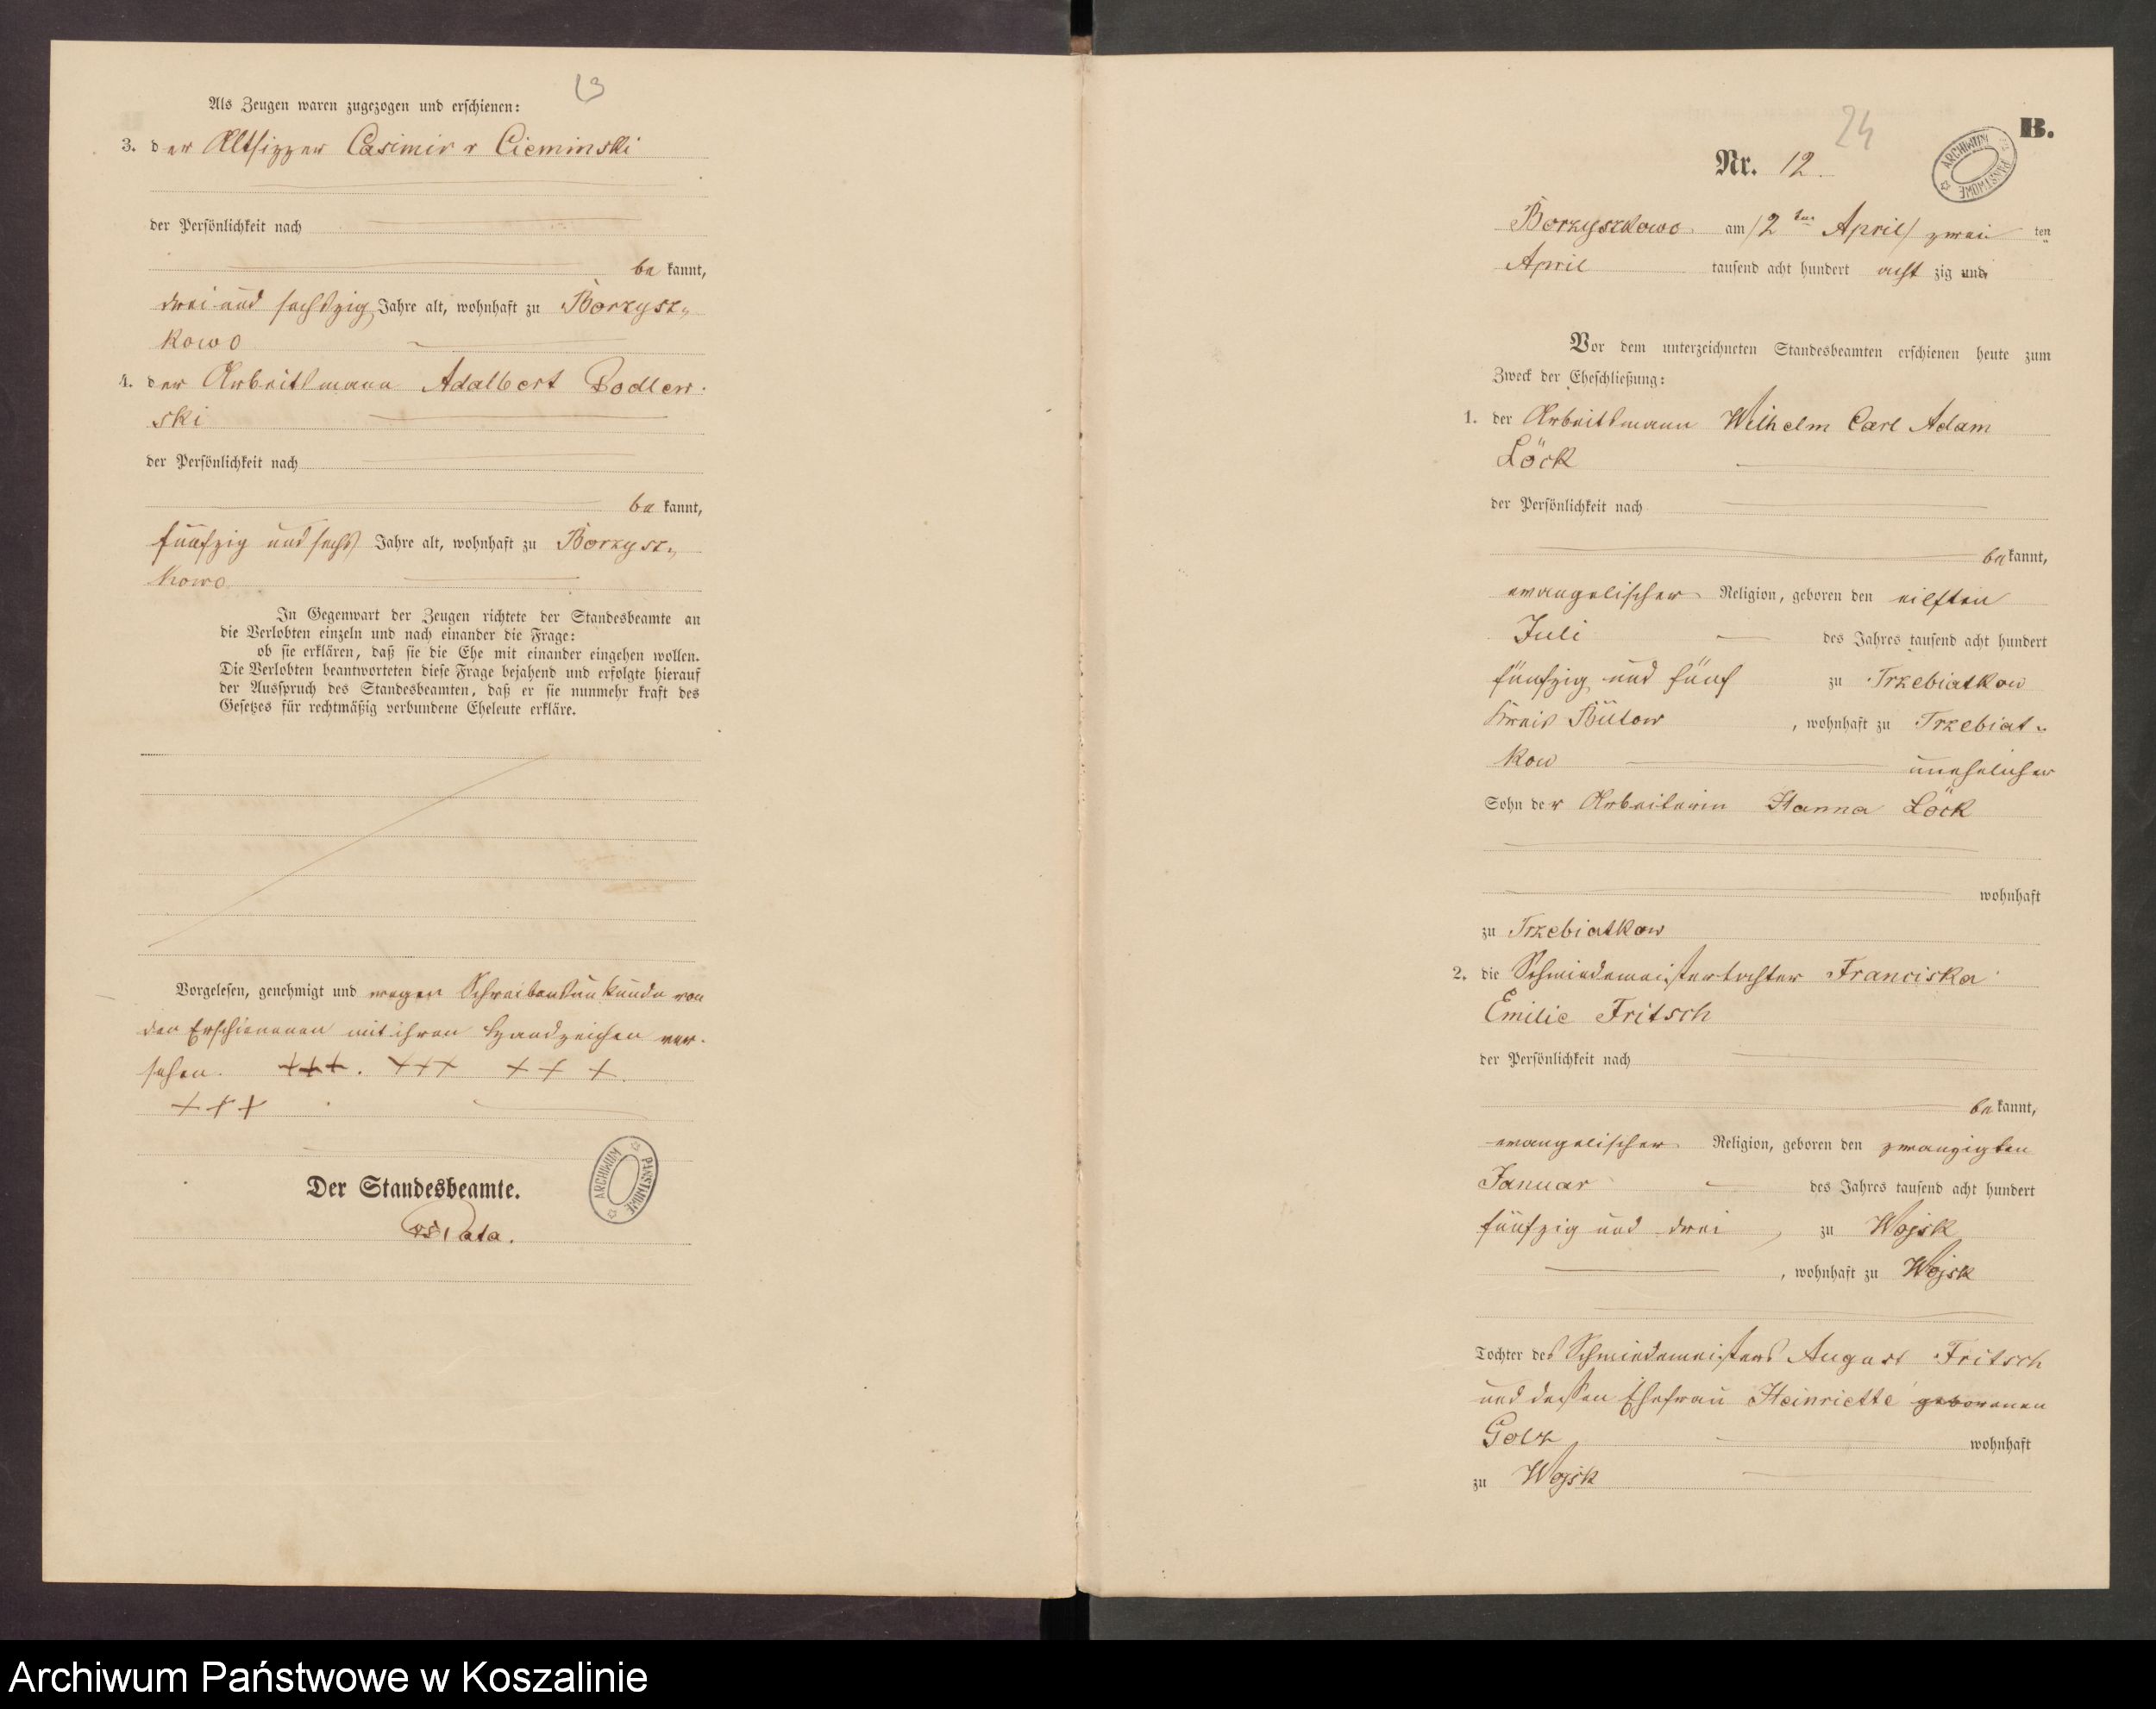 13
Als Zeugen waren zugezogen und erschienen:
3. der Altsitzer Casimir v Cieminski
der Persönlichkeit nach
bekannt,
drei und sechszig Jahre alt, wohnhaft zu Borzysz-
kowo
4. der Arbeitsmann Adalbert Podlew-
ski
der Persönlichkeit nach
bekannt,
fünfzig und sechs Jahre alt, wohnhaft zu Borzysz-
kowo
In Gegenwart der Zeugen richtete der Standesbeamte an
die Verlobten einzeln und nach einander die Frage:
ob sie erklären, daß sie die Ehe mit einander eingehen wollen.
Die Verlobten beantworteten diese Frage bejahend und erfolgte hierauf
der Ausspruch des Standesbeamten, daß er sie nunmehr kraft des
Gesetzes für rechtmäßig verbundene Eheleute erkläre.
Vorgelesen, genehmigt und wegen Schreibensunkunde von
den Erschienenen mit ihren Handzeichen ver-
sehen. +++. +++ +++
+++
Der Standesbeamte.
ARCHIWUM PAŃSTWOWE
24
B.
Nr. 12.
ARCHIWUM PAŃSTWOWE
Borzyszkowo am /2ten April/ zwei ten
April tausend acht hundert acht zig und
Vor dem unterzeichneten Standesbeamten erschienen heute zum
Zweck der Eheschließung:
1. der Arbeitsmann Wilhelm Carl Adam
Löck
der Persönlichkeit nach
bekannt,
evangelischer Religion, geboren den eilften
Juli des Jahres tausend acht hundert
fünfzig und fünf zu Trzebiatkow
Kreis Bütow, wohnhaft zu Trzebiat-
kow unehelicher
Sohn der Arbeiterin Hanna Löck
wohnhaft
zu Trzebiatkow
2. die Schmiedemeistertochter Franciska
Emilie Fritsch
der Persönlichkeit nach
bekannt,
evangelischer Religion, geboren den zwanzigten
Januar des Jahres tausend acht hundert
fünfzig und drei, zu Wojsk
, wohnhaft zu Wojsk
Tochter des Schmiedemeisters August Fritsch
und dessen Ehefrau Heinriette geborenen
Golz wohnhaft
zu Wojsk
Archiwum Państwowe w Koszalinie